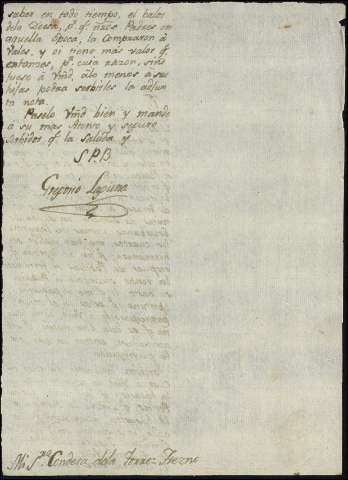 saber en todo tiempo, el balor
dela Deesa, p.r q.e nros Padres en
aquella epoca, la Compraron á
Vales, y oi tiene mas valor q.e
entonzes, p.r cuia razon, sino
fuese á Vmd, álo menos a sus
hijos podra serbirles la adjun
ta nota.
Paselo Vmd bien y mande
a su mas Atento y seguro
Serbidor q.e la Saluda y
S P B
Gregorio Laguna
Mi S.ra Condesa dela Torre